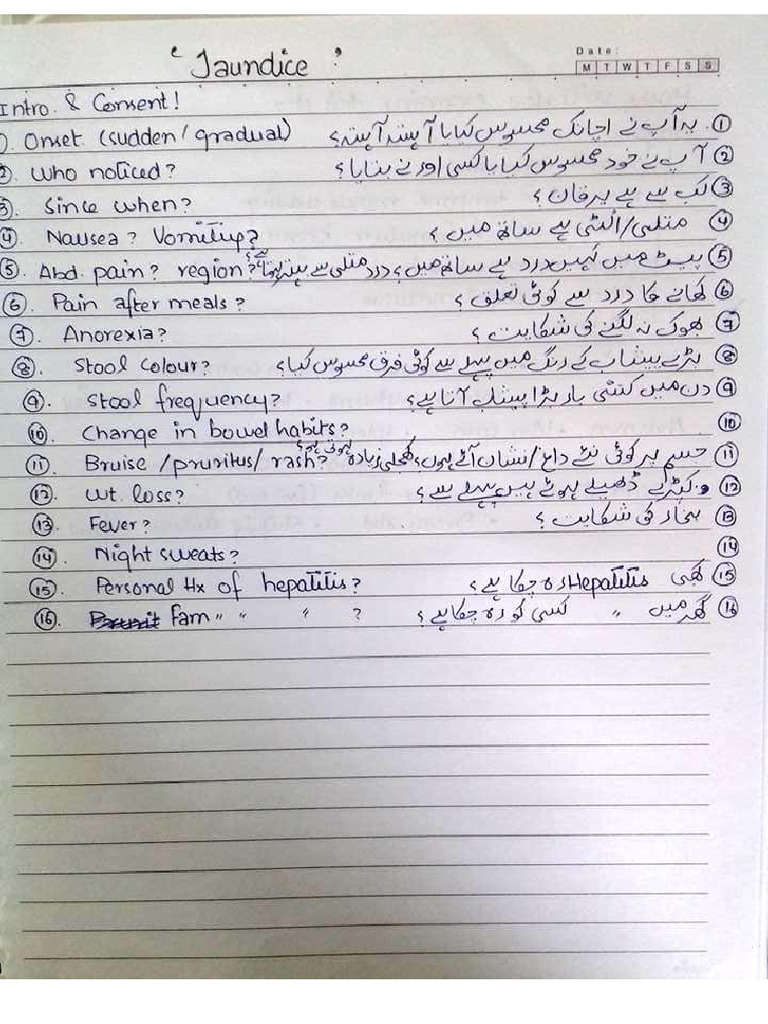 Date:
' Jaundice '
M T W T F S S
Intro. & Consent!
1) Onset (sudden/gradual) یہ آپ نے اچانک محسوس کیا یا آہستہ آہستہ؟ ①
2. who noticed? آپ نے خود محسوس کیا یا کسی اور نے بتایا؟ ②
3. Since when? کب سے ہے یرقان؟ ③
④. Nausea? Vomiting? متلی/الٹی ہے ساتھ میں؟ ④
⑤. Abd. pain? region? پیٹ میں کہیں درد ہے ساتھ میں؟ درد متلی سے بہتر ہوتا ہے؟ ⑤
⑥. Pain after meals? کھانے کا درد سے کوئی تعلق؟ ⑥
⑦. Anorexia? بھوک نہ لگنے کی شکایت؟ ⑦
⑧. Stool colour? بڑے پیشاب کے رنگ میں پہلے سے کوئی فرق محسوس کیا؟ ⑧
⑨. Stool frequency? دن میں کتنی بار بڑا پیشاب آتا ہے؟ ⑨
⑩. Change in bowel habits? ⑩
⑪. Bruise/pruritus/rash? جسم پر کوئی نئے داغ/نشان آئے ہوں؟ کھجلی زیادہ ہوتی ہے؟ ⑪
⑫. Wt. loss? کپڑے ڈھیلے ہوئے ہیں پہلے سے؟ ⑫
⑬. Fever? بخار کی شکایت؟ ⑬
⑭. Night sweats? ⑭
⑮. Personal Hx of hepatitis? کبھی Hepatitis رہ چکا ہے؟ ⑮
⑯. Fam " " " ? گھر میں " کسی کو رہ چکا ہے؟ ⑯